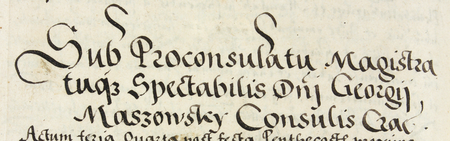 Sub Proconsulatu Magistra
tuq3 Spectabilis Dnj Georgij
Maszowsky Consulis Crac
Actum feria Quarta post festa Penthecostes proxima